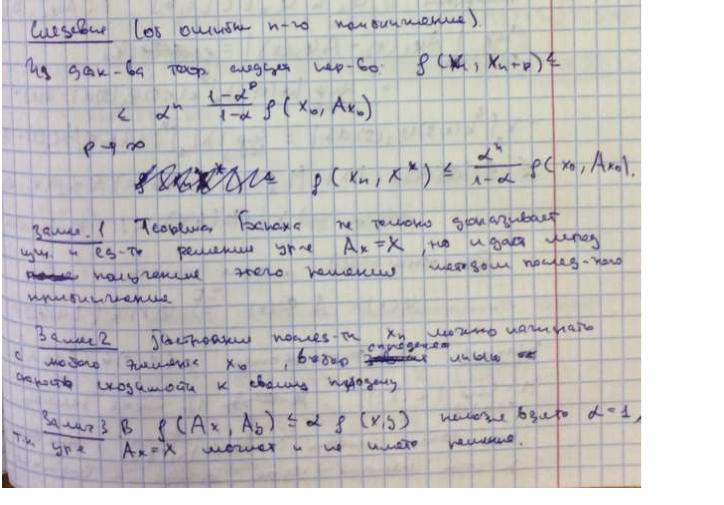 Следствие (об ошибке n-го приближения).
Из док-ва теор. следует нер-во: ρ(xₙ, xₙ₊ₚ) ≤
≤ αⁿ (1-αᵖ)/(1-α) ρ(x₀, Ax₀)
p → ∞
ρ(xₙ, x*) ≤ αⁿ/(1-α) ρ(x₀, Ax₀).
Замеч. 1 Теорема Банаха не только доказывает
сущ. и ед-ть решения ур-я Ax = x, но и дает метод
получения этого решения методом послед-ного
приближения
Замеч 2 Построение послед-ти xₙ можно начинать
с любого элемента x₀, выбор определяет лишь
скорость сходимости к своему пределу
Замеч 3 В ρ(Ax, Ay) ≤ α ρ(x, y) нельзя взять α = 1,
т.к. ур-е Ax = x может и не иметь решение.